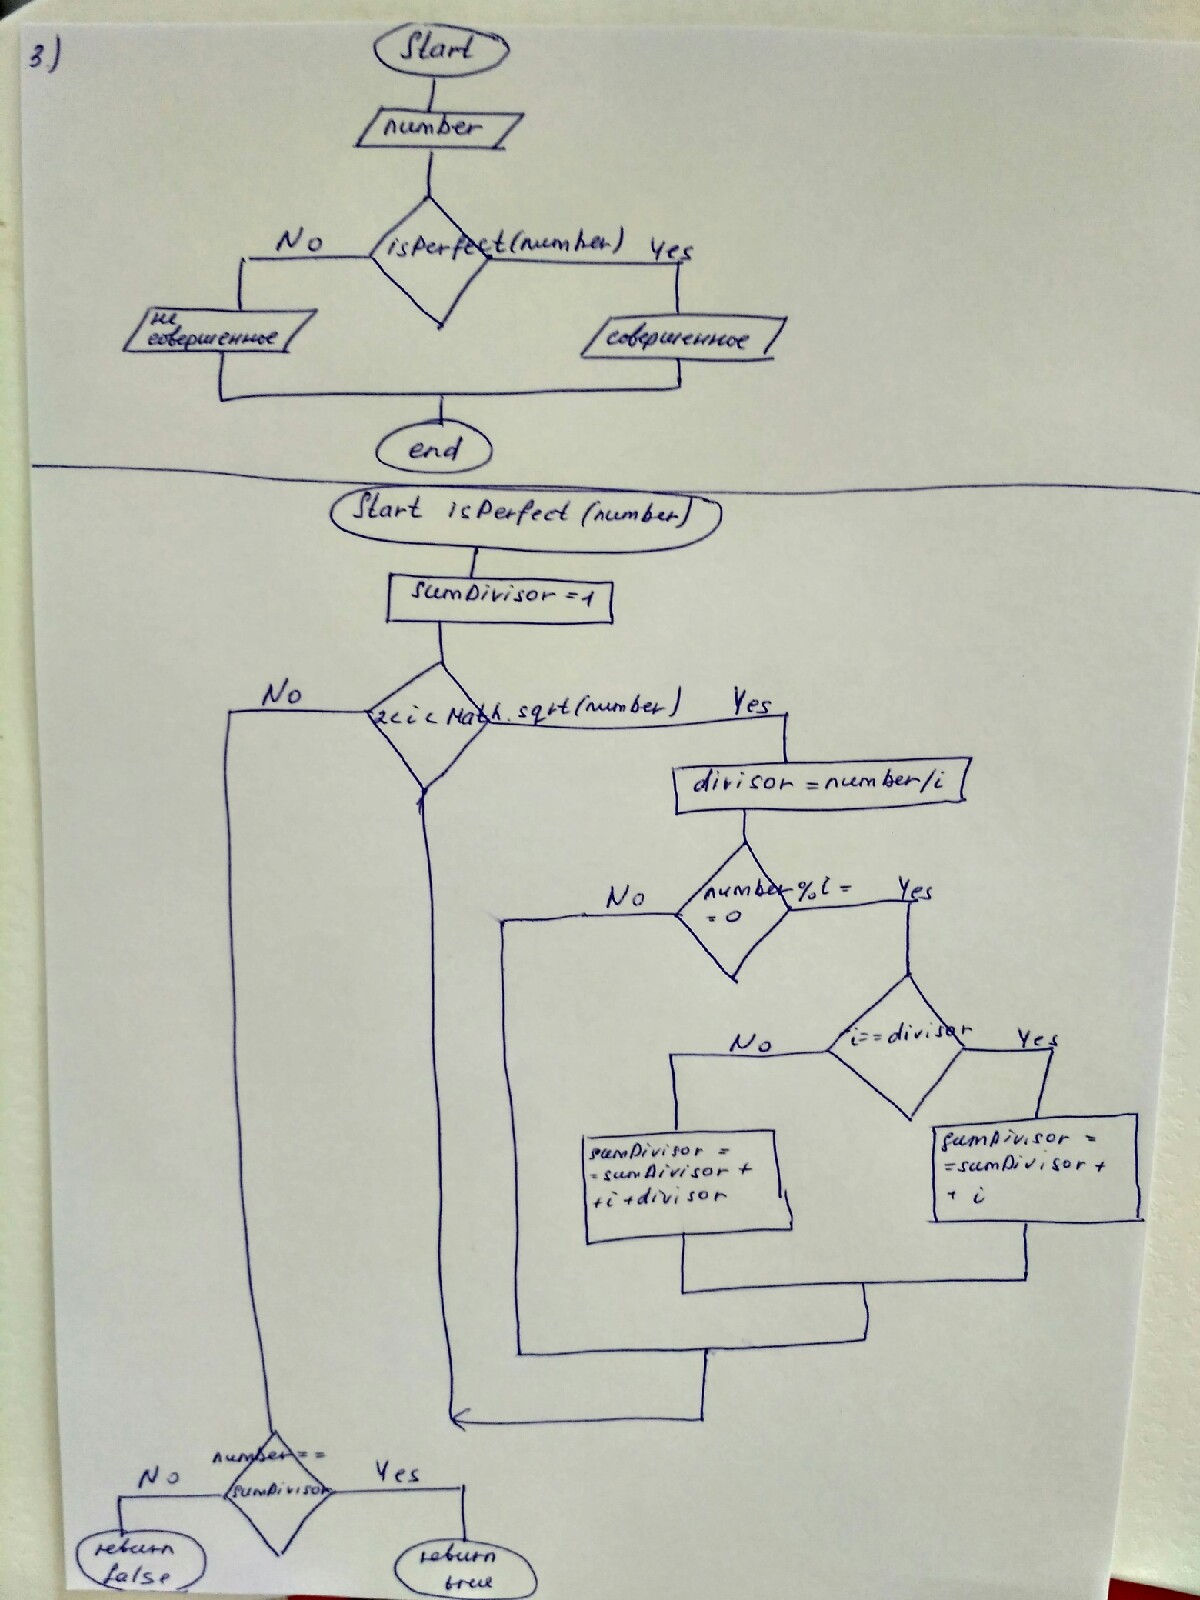 3)
Start
number
No
isPerfect(number)
Yes
не
совершенное
совершенное
end
Start isPerfect (number)
sumDivisor = 1
No
2<i< Math.sqrt(number)
Yes
divisor = number/i
No
number%i =
= 0
Yes
No
i==divisor
Yes
sumDivisor =
=sumDivisor +
+i+divisor
sumDivisor =
=sumDivisor +
+ i
number==
No
sumDivisor
Yes
return
false
return
true